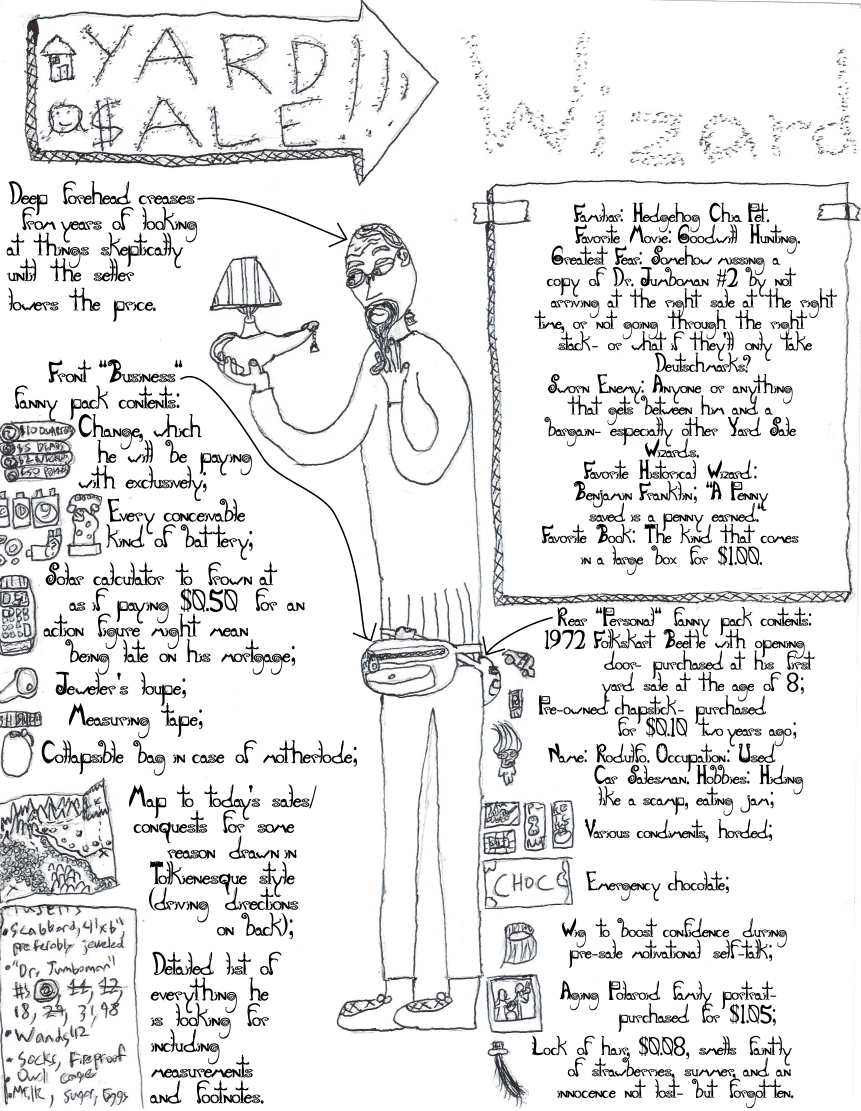 YARD
$ALE
Wizard
Deep forehead creases
from years of looking
at things skeptically
until the seller
lowers the price.
Front "Business"
fanny pack contents:
Change, which
he will be paying
with exclusively;
Every conceivable
kind of battery;
Solar calculator to frown at
as if paying $0.50 for an
action figure might mean
being late on his mortgage;
Jeweler's loupe;
Measuring tape;
Collapsible bag in case of motherlode;
Map to today's sales/
conquests for some
reason drawn in
Tolkienesque style
(driving directions
on back);
Scabbard, 41x6",
preferably jeweled
"Dr. Jumboman"
#s 2, 11, 12,
18, 29, 31, 98
Wands, 12
Socks, Fireproof
Owl cages
Milk, Sugar, Eggs
Detailed list of
everything he
is looking for
including
measurements
and footnotes.
Familiar: Hedgehog Chia Pet.
Favorite Movie: Goodwill Hunting.
Greatest Fear: Somehow missing a
copy of Dr. Jumboman #2 by not
arriving at the right sale at the right
time, or not going through the right
stack- or what if they'll only take
Deutschmarks?
Sworn Enemy: Anyone or anything
that gets between him and a
bargain- especially other Yard Sale
Wizards.
Favorite Historical Wizard:
Benjamin Franklin; "A Penny
saved is a penny earned."
Favorite Book: The kind that comes
in a large box for $1.00.
Rear "Personal" fanny pack contents:
1972 Folkskart Beetle with opening
door- purchased at his first
yard sale at the age of 8;
Pre-owned chapstick- purchased
for $0.10 two years ago;
Name: Rodulfo. Occupation: Used
Car Salesman. Hobbies: Hiding
like a scamp, eating jam;
Various condiments, horded;
CHOC
Emergency chocolate;
Wig to boost confidence during
pre-sale motivational self-talk;
Aging Polaroid family portrait-
purchased for $1.05;
Lock of hair, $0.08, smells faintly
of strawberries, summer, and an
innocence not lost- but forgotten.